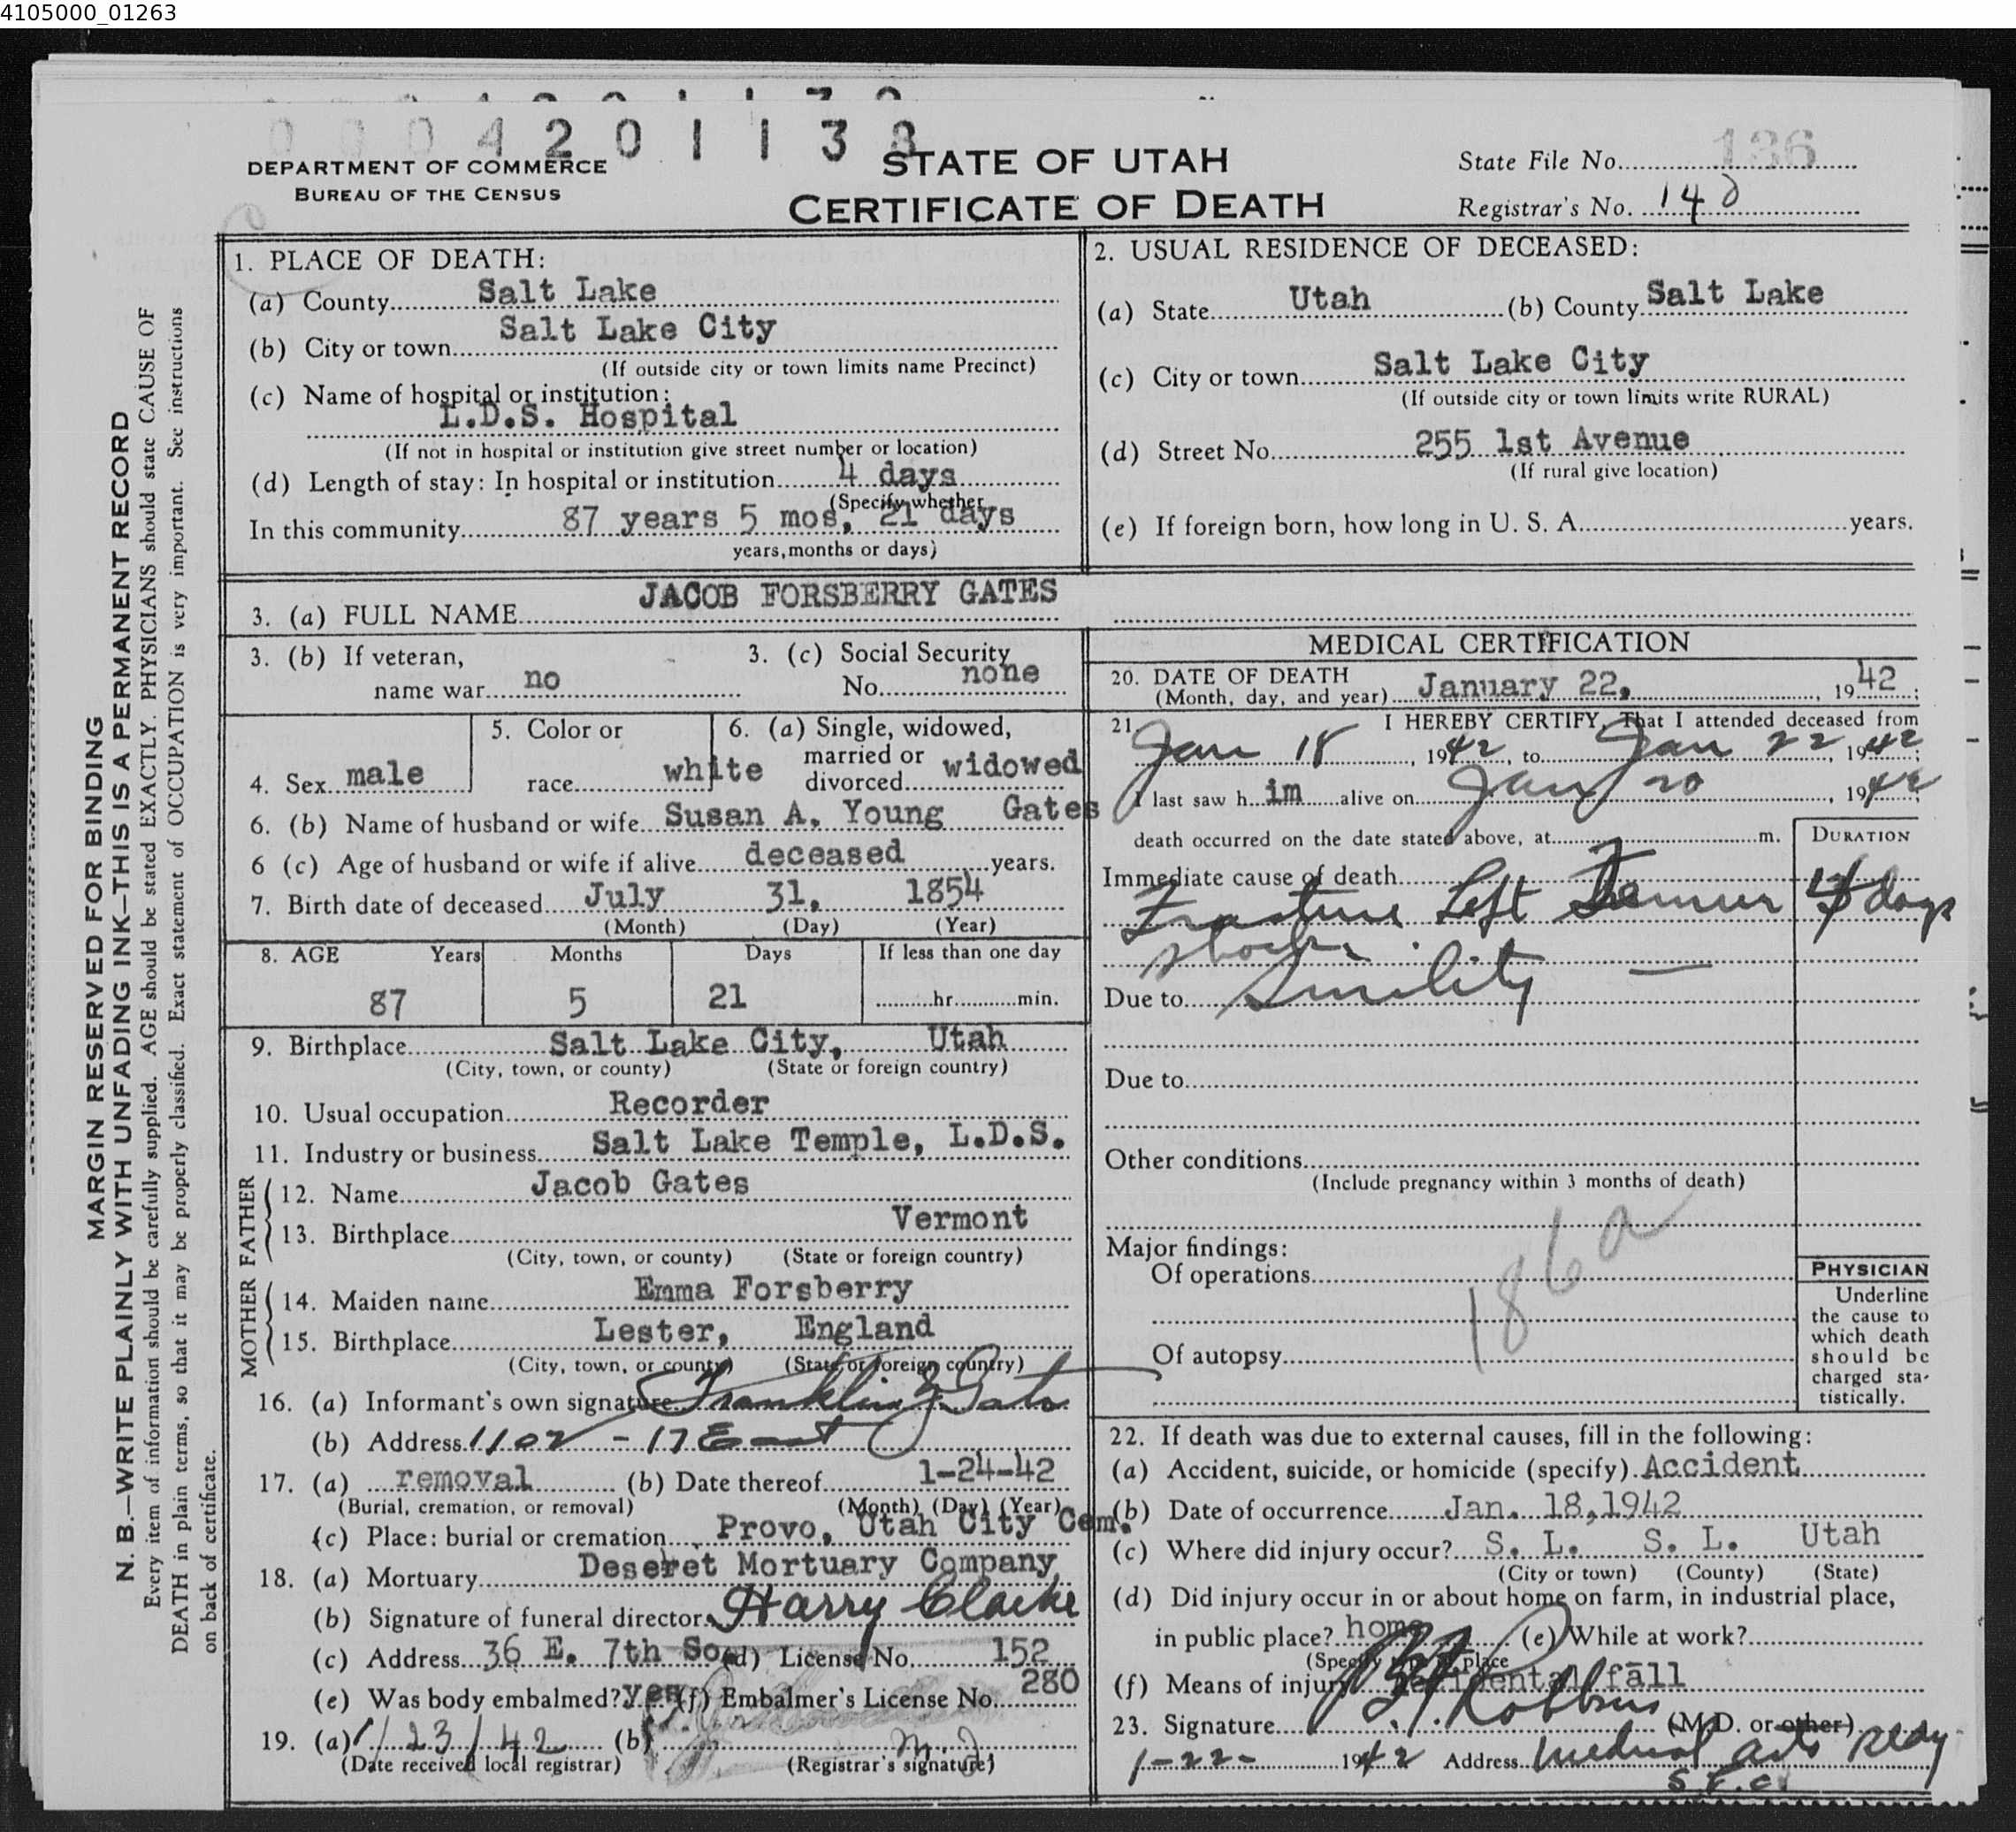 4105000_01263
0004201138
DEPARTMENT OF COMMERCE
BUREAU OF THE CENSUS
STATE OF UTAH
CERTIFICATE OF DEATH
State File No. 136
Registrar's No. 140
MARGIN RESERVED FOR BINDING
N. B.—WRITE PLAINLY WITH UNFADING INK—THIS IS A PERMANENT RECORD
Every item of information should be carefully supplied. AGE should be stated EXACTLY. PHYSICIANS should state CAUSE OF
DEATH in plain terms, so that it may be properly classified. Exact statement of OCCUPATION is very important. See instructions
on back of certificate.
1. PLACE OF DEATH:
(a) County Salt Lake
(b) City or town Salt Lake City
(If outside city or town limits name Precinct)
(c) Name of hospital or institution:
L.D.S. Hospital
(If not in hospital or institution give street number or location)
(d) Length of stay: In hospital or institution 4 days
(Specify whether
In this community 87 years 5 mos, 21 days
years, months or days)
2. USUAL RESIDENCE OF DECEASED:
(a) State Utah (b) County Salt Lake
(c) City or town Salt Lake City
(If outside city or town limits write RURAL)
(d) Street No. 255 1st Avenue
(If rural give location)
(e) If foreign born, how long in U. S. A. years.
3. (a) FULL NAME JACOB FORSBERRY GATES
3. (b) If veteran,
name war no
3. (c) Social Security
No. none
4. Sex male
5. Color or
race white
6. (a) Single, widowed,
married or
divorced widowed
6. (b) Name of husband or wife Susan A. Young Gates
6 (c) Age of husband or wife if alive deceased years.
7. Birth date of deceased July 31, 1854
(Month) (Day) (Year)
8. AGE Years Months Days If less than one day
87 5 21 hr. min.
9. Birthplace Salt Lake City, Utah
(City, town, or county) (State or foreign country)
10. Usual occupation Recorder
11. Industry or business Salt Lake Temple, L.D.S.
FATHER
12. Name Jacob Gates
13. Birthplace Vermont
(City, town, or county) (State or foreign country)
MOTHER
14. Maiden name Emma Forsberry
15. Birthplace Lester, England
(City, town, or county) (State or foreign country)
16. (a) Informant's own signature Franklin Y. Gates
(b) Address 1102 - 17 East
17. (a) removal (b) Date thereof 1-24-42
(Burial, cremation, or removal) (Month) (Day) (Year)
(c) Place: burial or cremation Provo, Utah City Cem.
18. (a) Mortuary Deseret Mortuary Company
(b) Signature of funeral director Harry Clarke
(c) Address 36 E. 7th So. (d) License No. 152
(e) Was body embalmed? yes (f) Embalmer's License No. 280
19. (a) 1/23/42 (b)
(Date received local registrar) (Registrar's signature)
MEDICAL CERTIFICATION
20. DATE OF DEATH
(Month, day, and year) January 22, 1942;
21. I HEREBY CERTIFY, That I attended deceased from
Jan 18, 1942, to Jan 22, 1942;
I last saw him alive on Jan 20, 1942;
death occurred on the date stated above, at m.
DURATION
Immediate cause of death
Fracture Left Femur 4 days
shock.
Due to Senility —
Due to
Other conditions
(Include pregnancy within 3 months of death)
Major findings:
Of operations
186a
Of autopsy
PHYSICIAN
Underline
the cause to
which death
should be
charged sta-
tistically.
22. If death was due to external causes, fill in the following:
(a) Accident, suicide, or homicide (specify) Accident
(b) Date of occurrence Jan. 18, 1942
(c) Where did injury occur? S. L. S. L. Utah
(City or town) (County) (State)
(d) Did injury occur in or about home on farm, in industrial place,
in public place? home (e) While at work?
(Specify type of place
(f) Means of injury accidental fall
23. Signature Robbins (M.D. or other)
1-22- 1942 Address Medical Arts Bldg
S.L.C.